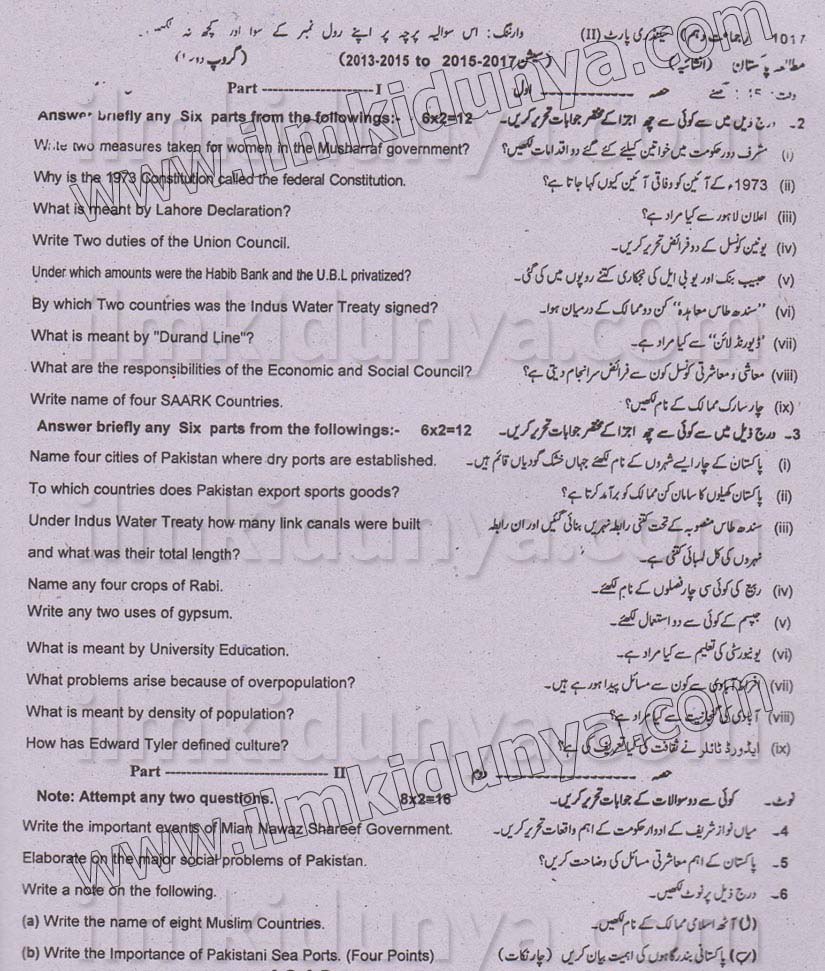 1017 (جماعت دہم) سیکنڈری پارٹ (II) وارننگ: اس سوالیہ پرچہ پر اپنے رول نمبر کے سوا اور کچھ نہ لکھیں۔
مطالعہ پاکستان (انشائیہ) (سیشن 2015-2017 to 2013-2015) (گروپ
Part ----------------I حصہ ---------------- اول
Answer briefly any Six parts from the followings:- 6x2=12 2۔ درج ذیل میں سے کوئی سے چھ اجزا کے مختصر جوابات تحریر کریں۔
Write two measures taken for women in the Musharraf government? (i) مشرف دور حکومت میں خواتین کیلئے کئے گئے دو اقدامات لکھیں؟
Why is the 1973 Constitution called the federal Constitution. (ii) 1973ء کے آئین کو وفاقی آئین کیوں کہا جاتا ہے؟
What is meant by Lahore Declaration? (iii) اعلان لاہور سے کیا مراد ہے؟
Write Two duties of the Union Council. (iv) یونین کونسل کے دو فرائض تحریر کریں۔
Under which amounts were the Habib Bank and the U.B.L privatized? (v) حبیب بنک اور یو بی ایل کی نجکاری کتنے روپوں میں کی گئی۔
By which Two countries was the Indus Water Treaty signed? (vi) ”سندھ طاس معاہدہ“ کن دو ممالک کے درمیان ہوا۔
What is meant by "Durand Line"? (vii) ”ڈیورنڈ لائن“ سے کیا مراد ہے۔
What are the responsibilities of the Economic and Social Council? (viii) معاشی و معاشرتی کونسل کون سے فرائض سرانجام دیتی ہے؟
Write name of four SAARK Countries. (ix) چار سارک ممالک کے نام لکھیں؟
Answer briefly any Six parts from the followings:- 6x2=12 3۔ درج ذیل میں سے کوئی سے چھ اجزا کے مختصر جوابات تحریر کریں۔
Name four cities of Pakistan where dry ports are established. (i) پاکستان کے چار ایسے شہروں کے نام لکھئے جہاں خشک گودیاں قائم ہیں۔
To which countries does Pakistan export sports goods? (ii) پاکستان کھیلوں کا سامان کن ممالک کو برآمد کرتا ہے؟
Under Indus Water Treaty how many link canals were built (iii) سندھ طاس منصوبہ کے تحت کتنی رابطہ نہریں بنائی گئیں اور ان رابطہ
and what was their total length? نہروں کی کل لمبائی کتنی ہے۔
Name any four crops of Rabi. (iv) ربیع کی کوئی سی چار فصلوں کے نام لکھئے۔
Write any two uses of gypsum. (v) جپسم کے کوئی سے دو استعمال لکھئے۔
What is meant by University Education. (vi) یونیورسٹی کی تعلیم سے کیا مراد ہے۔
What problems arise because of overpopulation? (vii) افراط آبادی سے کون سے مسائل پیدا ہو رہے ہیں۔
What is meant by density of population? (viii) آبادی کی گنجانیت سے کیا مراد ہے؟
How has Edward Tyler defined culture? (ix) ایڈورڈ ٹائلر نے ثقافت کی کیا تعریف کی ہے؟
Part ---------------------------- II حصہ ---------------- دوم
Note: Attempt any two questions. 8x2=16 نوٹ۔ کوئی سے دو سوالات کے جوابات تحریر کریں۔
Write the important events of Mian Nawaz Shareef Government. 4۔ میاں نواز شریف کے ادوار حکومت کے اہم واقعات تحریر کریں۔
Elaborate on the major social problems of Pakistan. 5۔ پاکستان کے اہم معاشرتی مسائل کی وضاحت کریں؟
Write a note on the following. 6۔ درج ذیل پر نوٹ لکھیں۔
(a) Write the name of eight Muslim Countries. (ا) آٹھ اسلامی ممالک کے نام لکھیں۔
(b) Write the Importance of Pakistani Sea Ports. (Four Points) (ب) پاکستانی بندرگاہوں کی اہمیت بیان کریں (چار نکات)
www.ilmkidunya.com
www.ilmkidunya.com
ilmkidunya.com
ilmkidunya.com
ilmkidunya.com
ilmkidunya.com
ilmkidunya.com